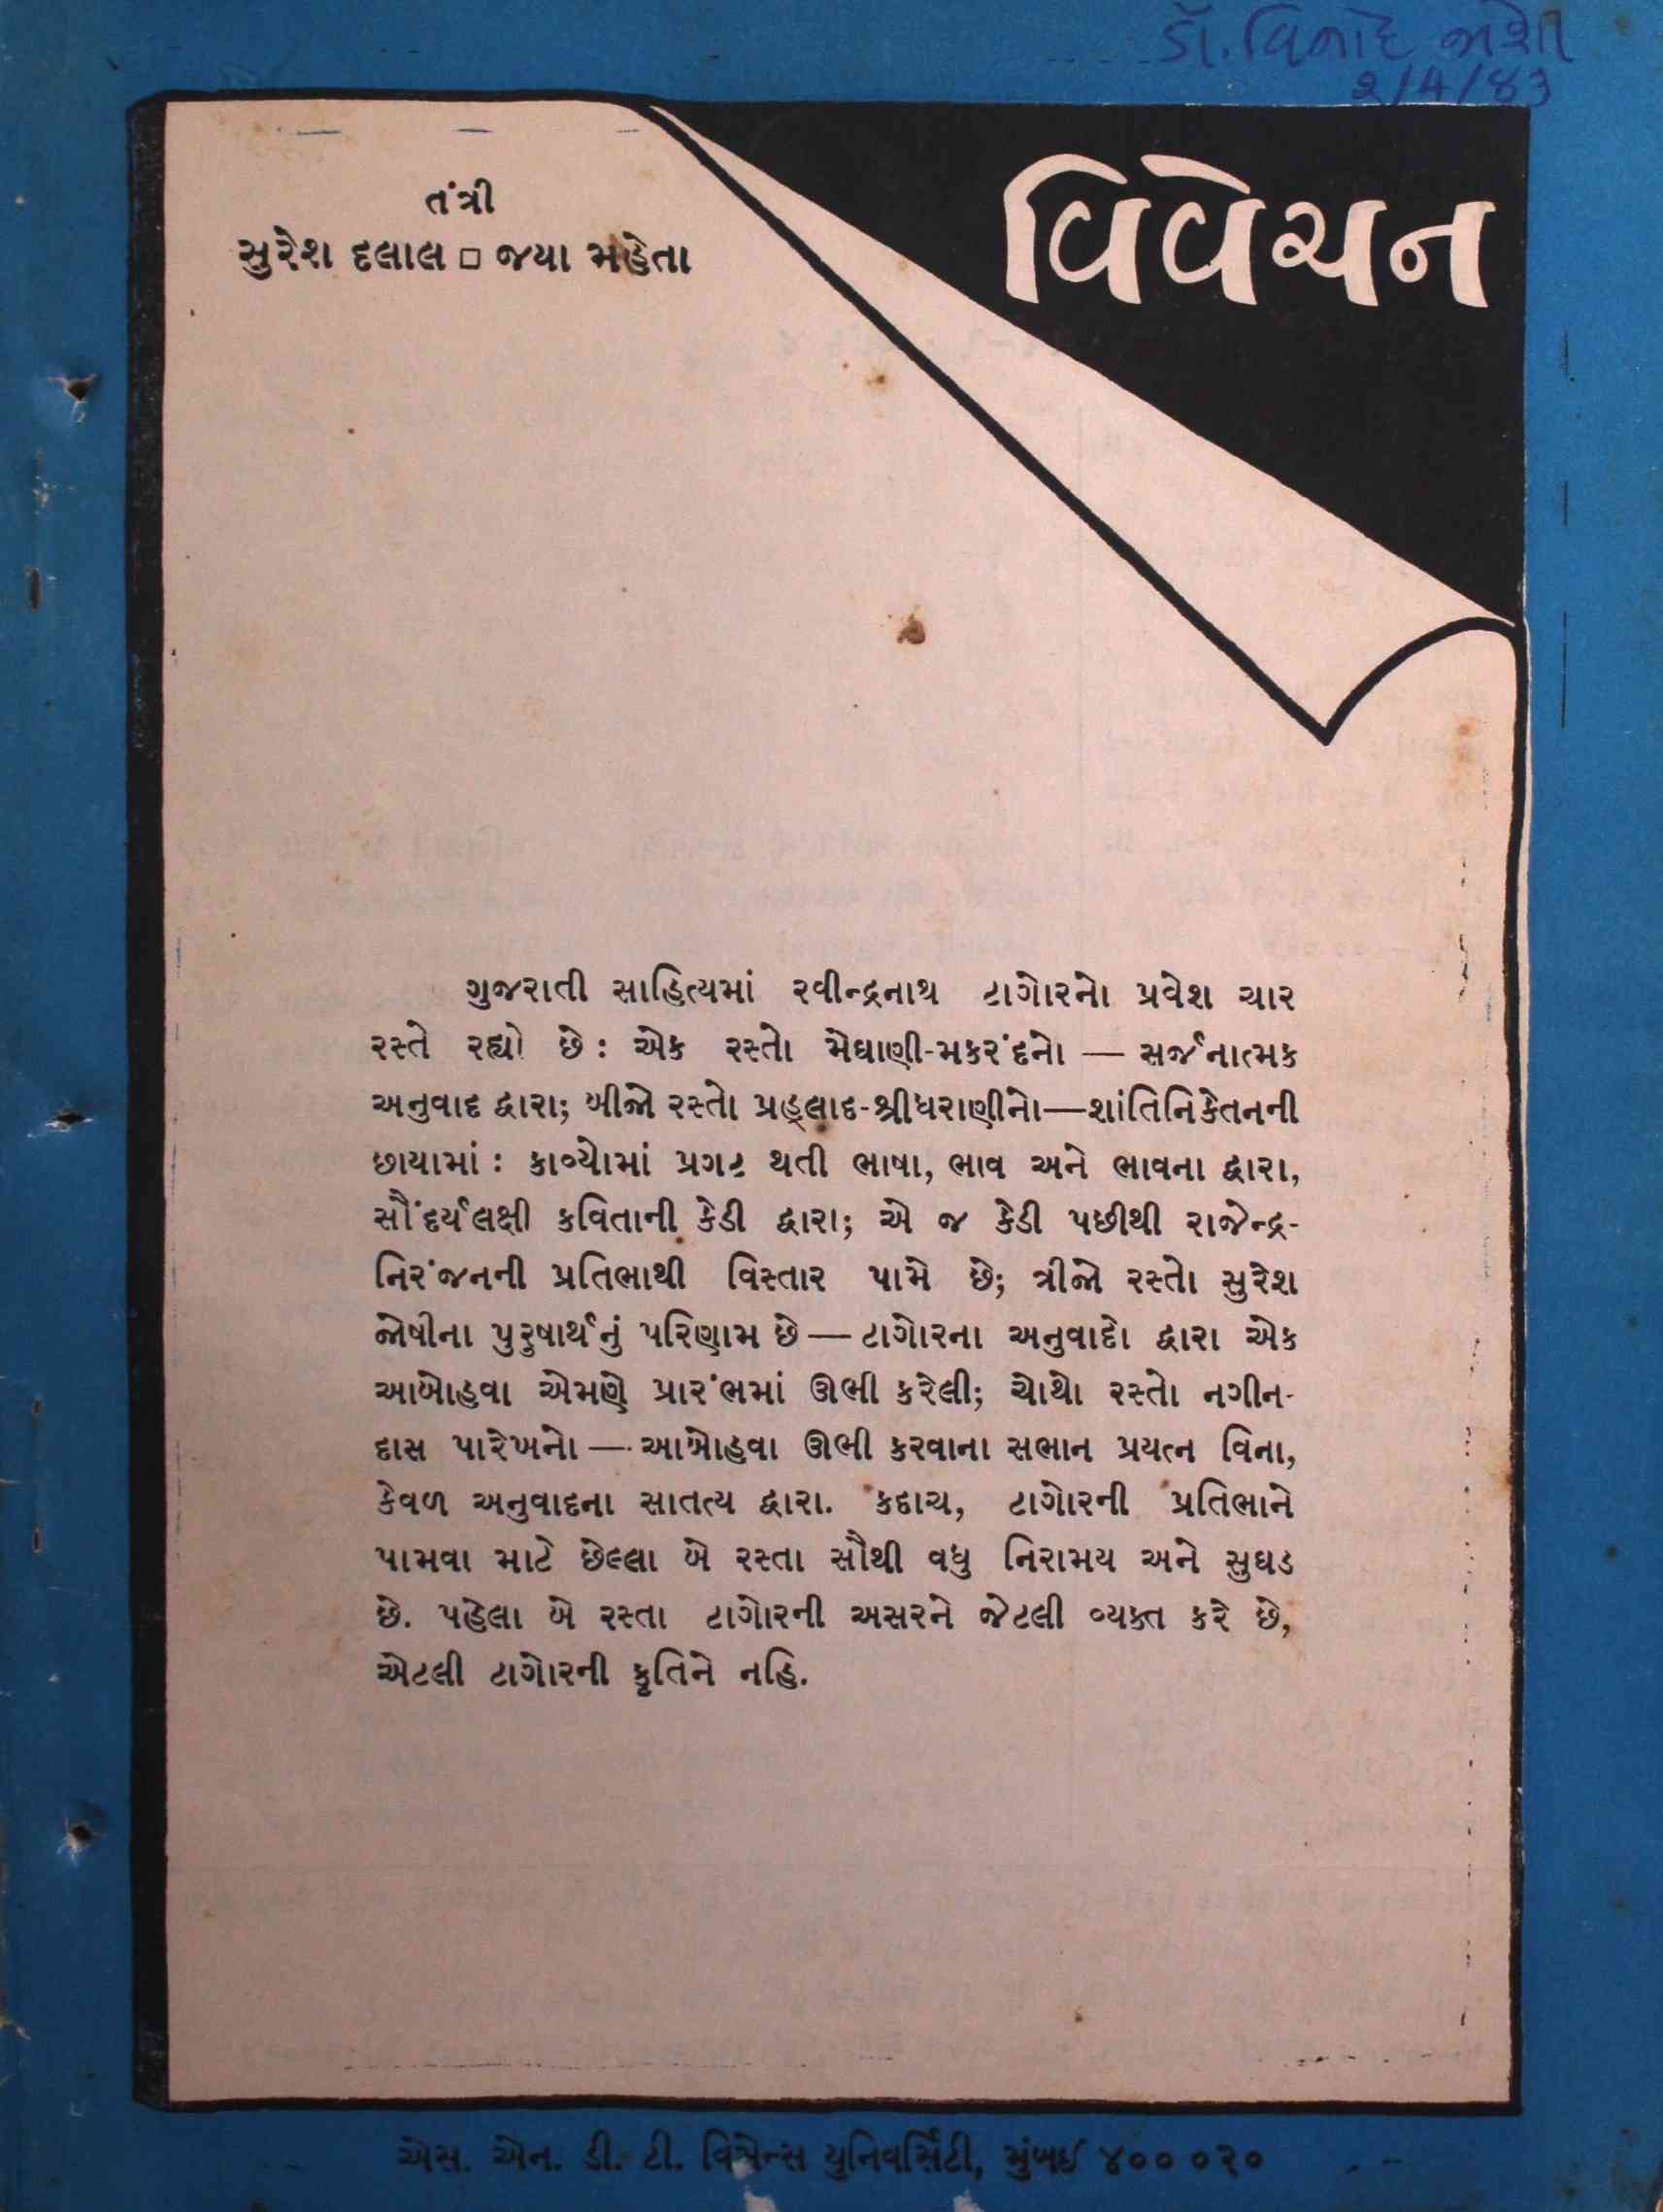 ડૉ. વિનોદ જોશી
૨/૫/૪૩
વિવેચન
તંત્રી
સુરેશ દલાલ □ જયા મહેતા
ગુજરાતી સાહિત્યમાં રવીન્દ્રનાથ ટાગોરનો પ્રવેશ ચાર
રસ્તે રહ્યો છે : એક રસ્તો મેઘાણી-મકરંદનો — સર્જનાત્મક
અનુવાદ દ્વારા; બીજો રસ્તો પ્રહ્‌લાદ-શ્રીધરાણીનો—શાંતિનિકેતનની
છાયામાં : કાવ્યોમાં પ્રગટ થતી ભાષા, ભાવ અને ભાવના દ્વારા,
સૌંદર્યલક્ષી કવિતાની કેડી દ્વારા; એ જ કેડી પછીથી રાજેન્દ્ર-
નિરંજનની પ્રતિભાથી વિસ્તાર પામે છે; ત્રીજો રસ્તો સુરેશ
જોષીના પુરુષાર્થનું પરિણામ છે — ટાગોરના અનુવાદો દ્વારા એક
આબોહવા એમણે પ્રારંભમાં ઊભી કરેલી; ચોથો રસ્તો નગીન-
દાસ પારેખનો — આબોહવા ઊભી કરવાના સભાન પ્રયત્ન વિના,
કેવળ અનુવાદના સાતત્ય દ્વારા. કદાચ, ટાગોરની પ્રતિભાને
પામવા માટે છેલ્લા બે રસ્તા સૌથી વધુ નિરામય અને સુઘડ
છે. પહેલા બે રસ્તા ટાગોરની અસરને જેટલી વ્યક્ત કરે છે,
એટલી ટાગોરની કૃતિને નહિ.
એસ. એન. ડી. ટી. વિમેન્સ યુનિવર્સિટી, મુંબઈ ૪૦૦ ૦૨૦